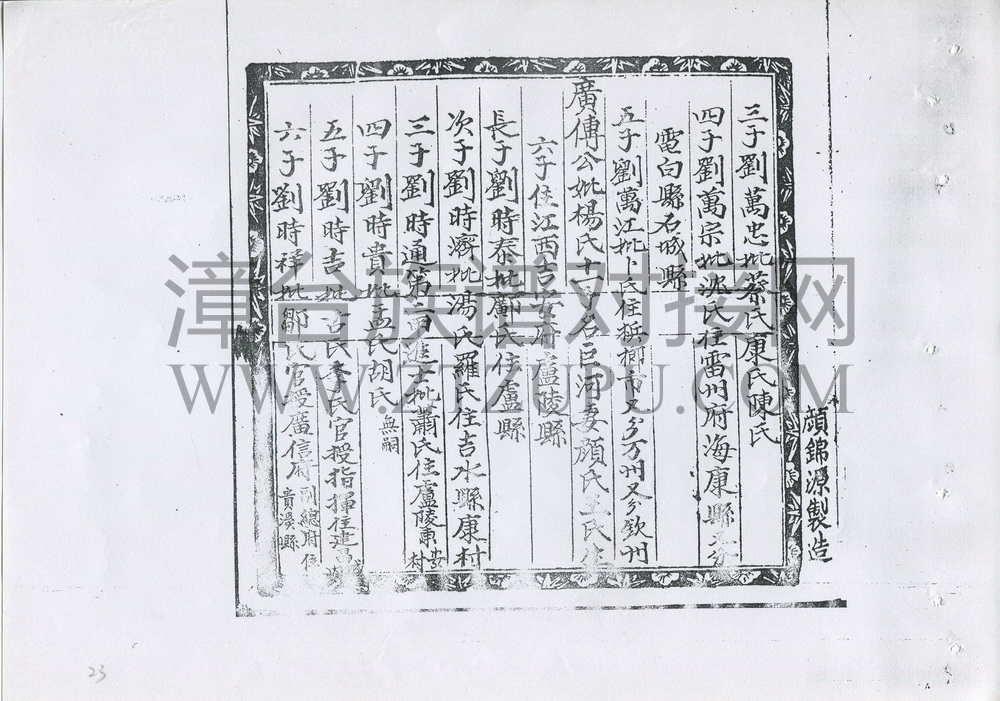 三子劉萬忠妣蔡氏康氏陳氏
四子劉萬宗妣沈氏住雷州府海康縣又分
電白縣石城縣
五子劉萬江妣卜氏住梹榔市又分万州又分欽州
廣傳公妣楊氏十一名巨河妻顏氏王氏生
六子住江西吉安府廬陵縣
長子劉時泰妣鄺氏住盧縣
次子劉時濟妣湯氏羅氏住吉水縣康村
三子劉時通第二百進士妣蕭氏住盧陵東安村
四子劉時貴妣孟氏胡氏無嗣
五子劉時吉妣呂氏李氏官授指揮住建昌
六子劉時祥妣鄒氏官授廣信府副總府住貴溪縣
顔錦源製造
漳台族谱对接网
WWW.ZTZUPU.COM
23